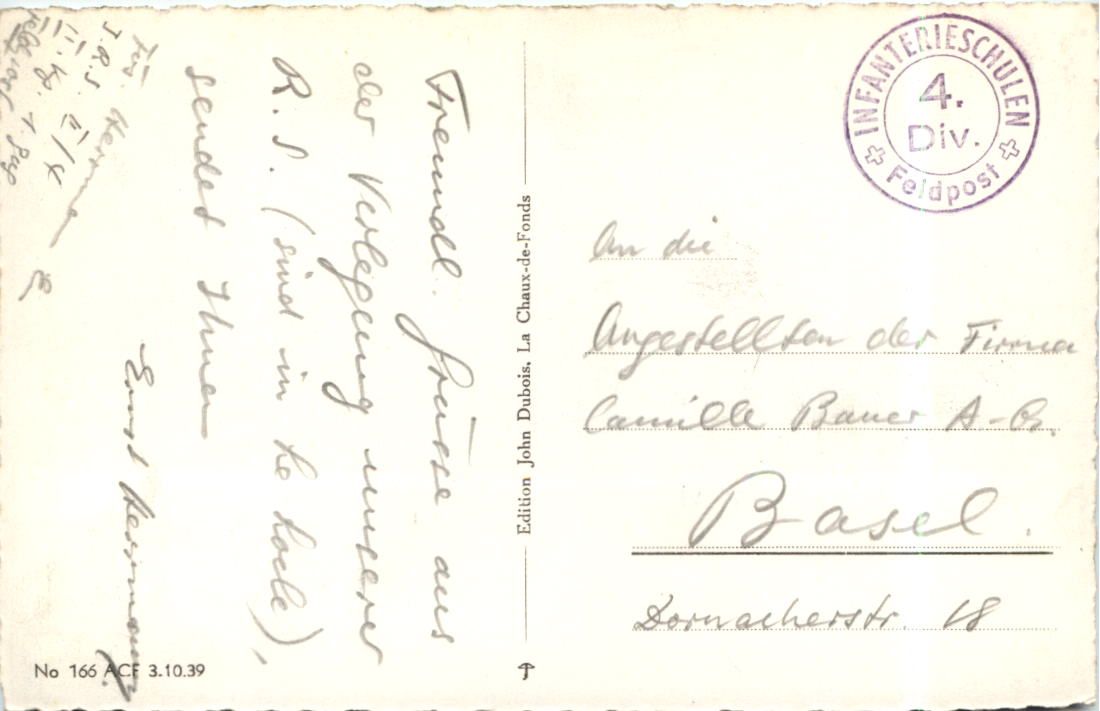 Freundl. Grüsse aus
der Verlegung unserer
R.S. (sind in Le Locle),
sendet Ihnen
Ernst Herrmann
Herrmann
I.R.S. II/4
II. Kp.
INFANTERIESCHULEN
4.
Div.
Feldpost
An die
Angestellten der Firma
Camille Bauer A.-G.
Basel.
Dornacherstr. 18
Edition John Dubois, La Chaux-de-Fonds
No 166 ACF 3.10.39